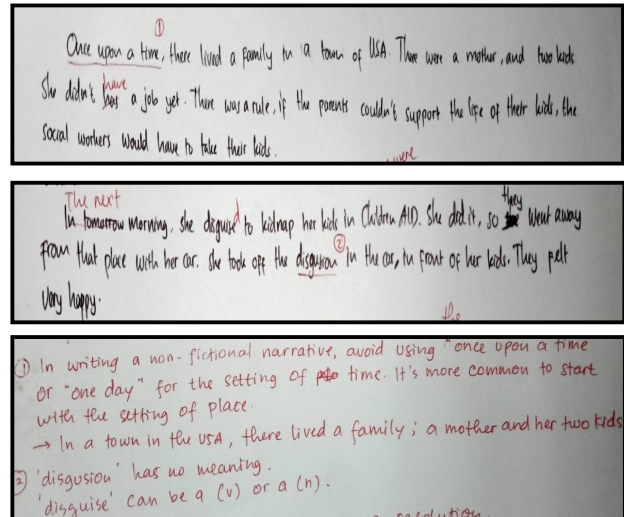 ①
Once upon a time, there lived a family in a town of USA. There were a mother, and two kids
have
She didn't has a job yet. There was a rule, if the parents couldn't support the life of their kids, the
social workers would have to take their kids.
were
The next they
In tomorrow morning, she disguised to kidnap her kids in Children AID. She did it, so went away
②
from that place with her car. She took off the disgusion in the car, in front of her kids. They felt
very happy.
the
① In writing a non-fictional narrative, avoid using "once upon a time
or "one day" for the setting of time. It's more common to start
with the setting of place.
→ In a town in the USA, there lived a family; a mother and her two kids
② 'disgusion' has no meaning.
'disguise' can be a (v) or a (n).